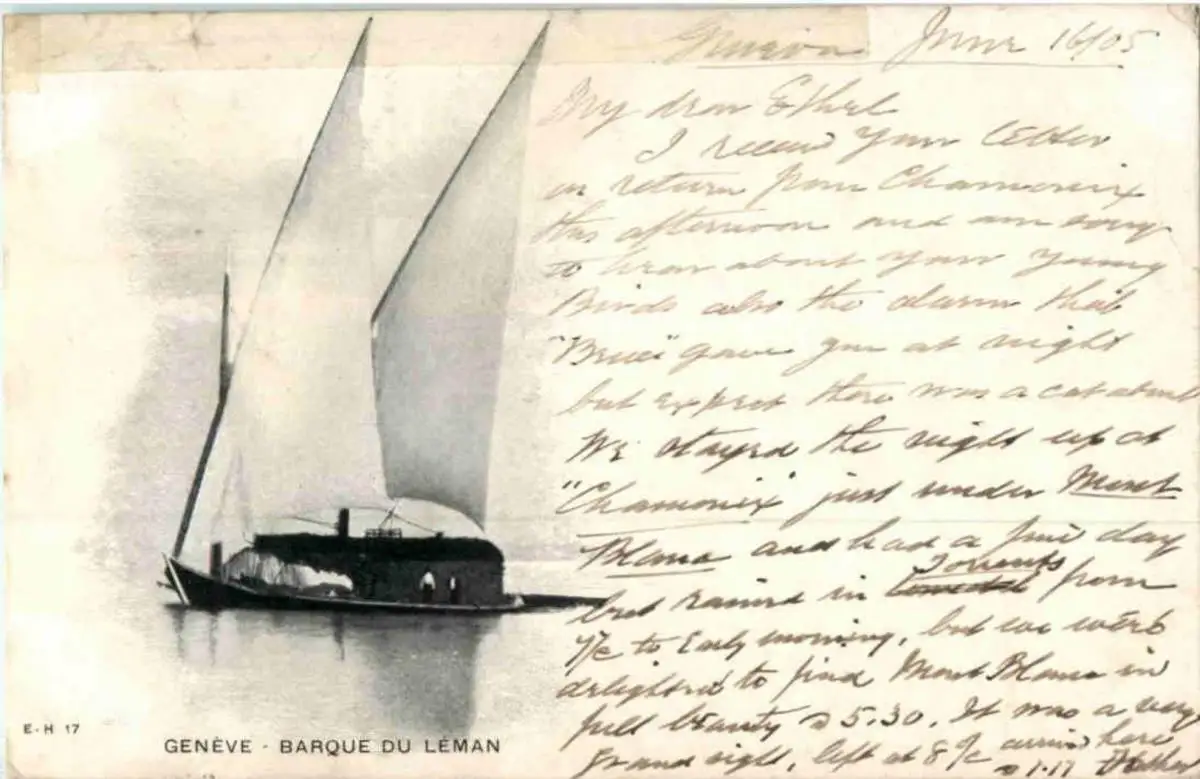 Geneva June 16/05
My dear Ethel
I received your letter
on return from Chamonix
this afternoon and am sorry
to hear about your young
Birds also the alarm that
gave you at night
but expect there was a cat about
We stayed the night up at
"Chamonix" just under Mont
Blanc and had a fine day
but rained in Torrents from
to Early morning, but we were
delighted to find Mont Blanc in
full beauty 5.30. It was a very
Grand sight, left at 8 here
1.17 Father
E-H 17
GENÈVE - BARQUE DU LÉMAN